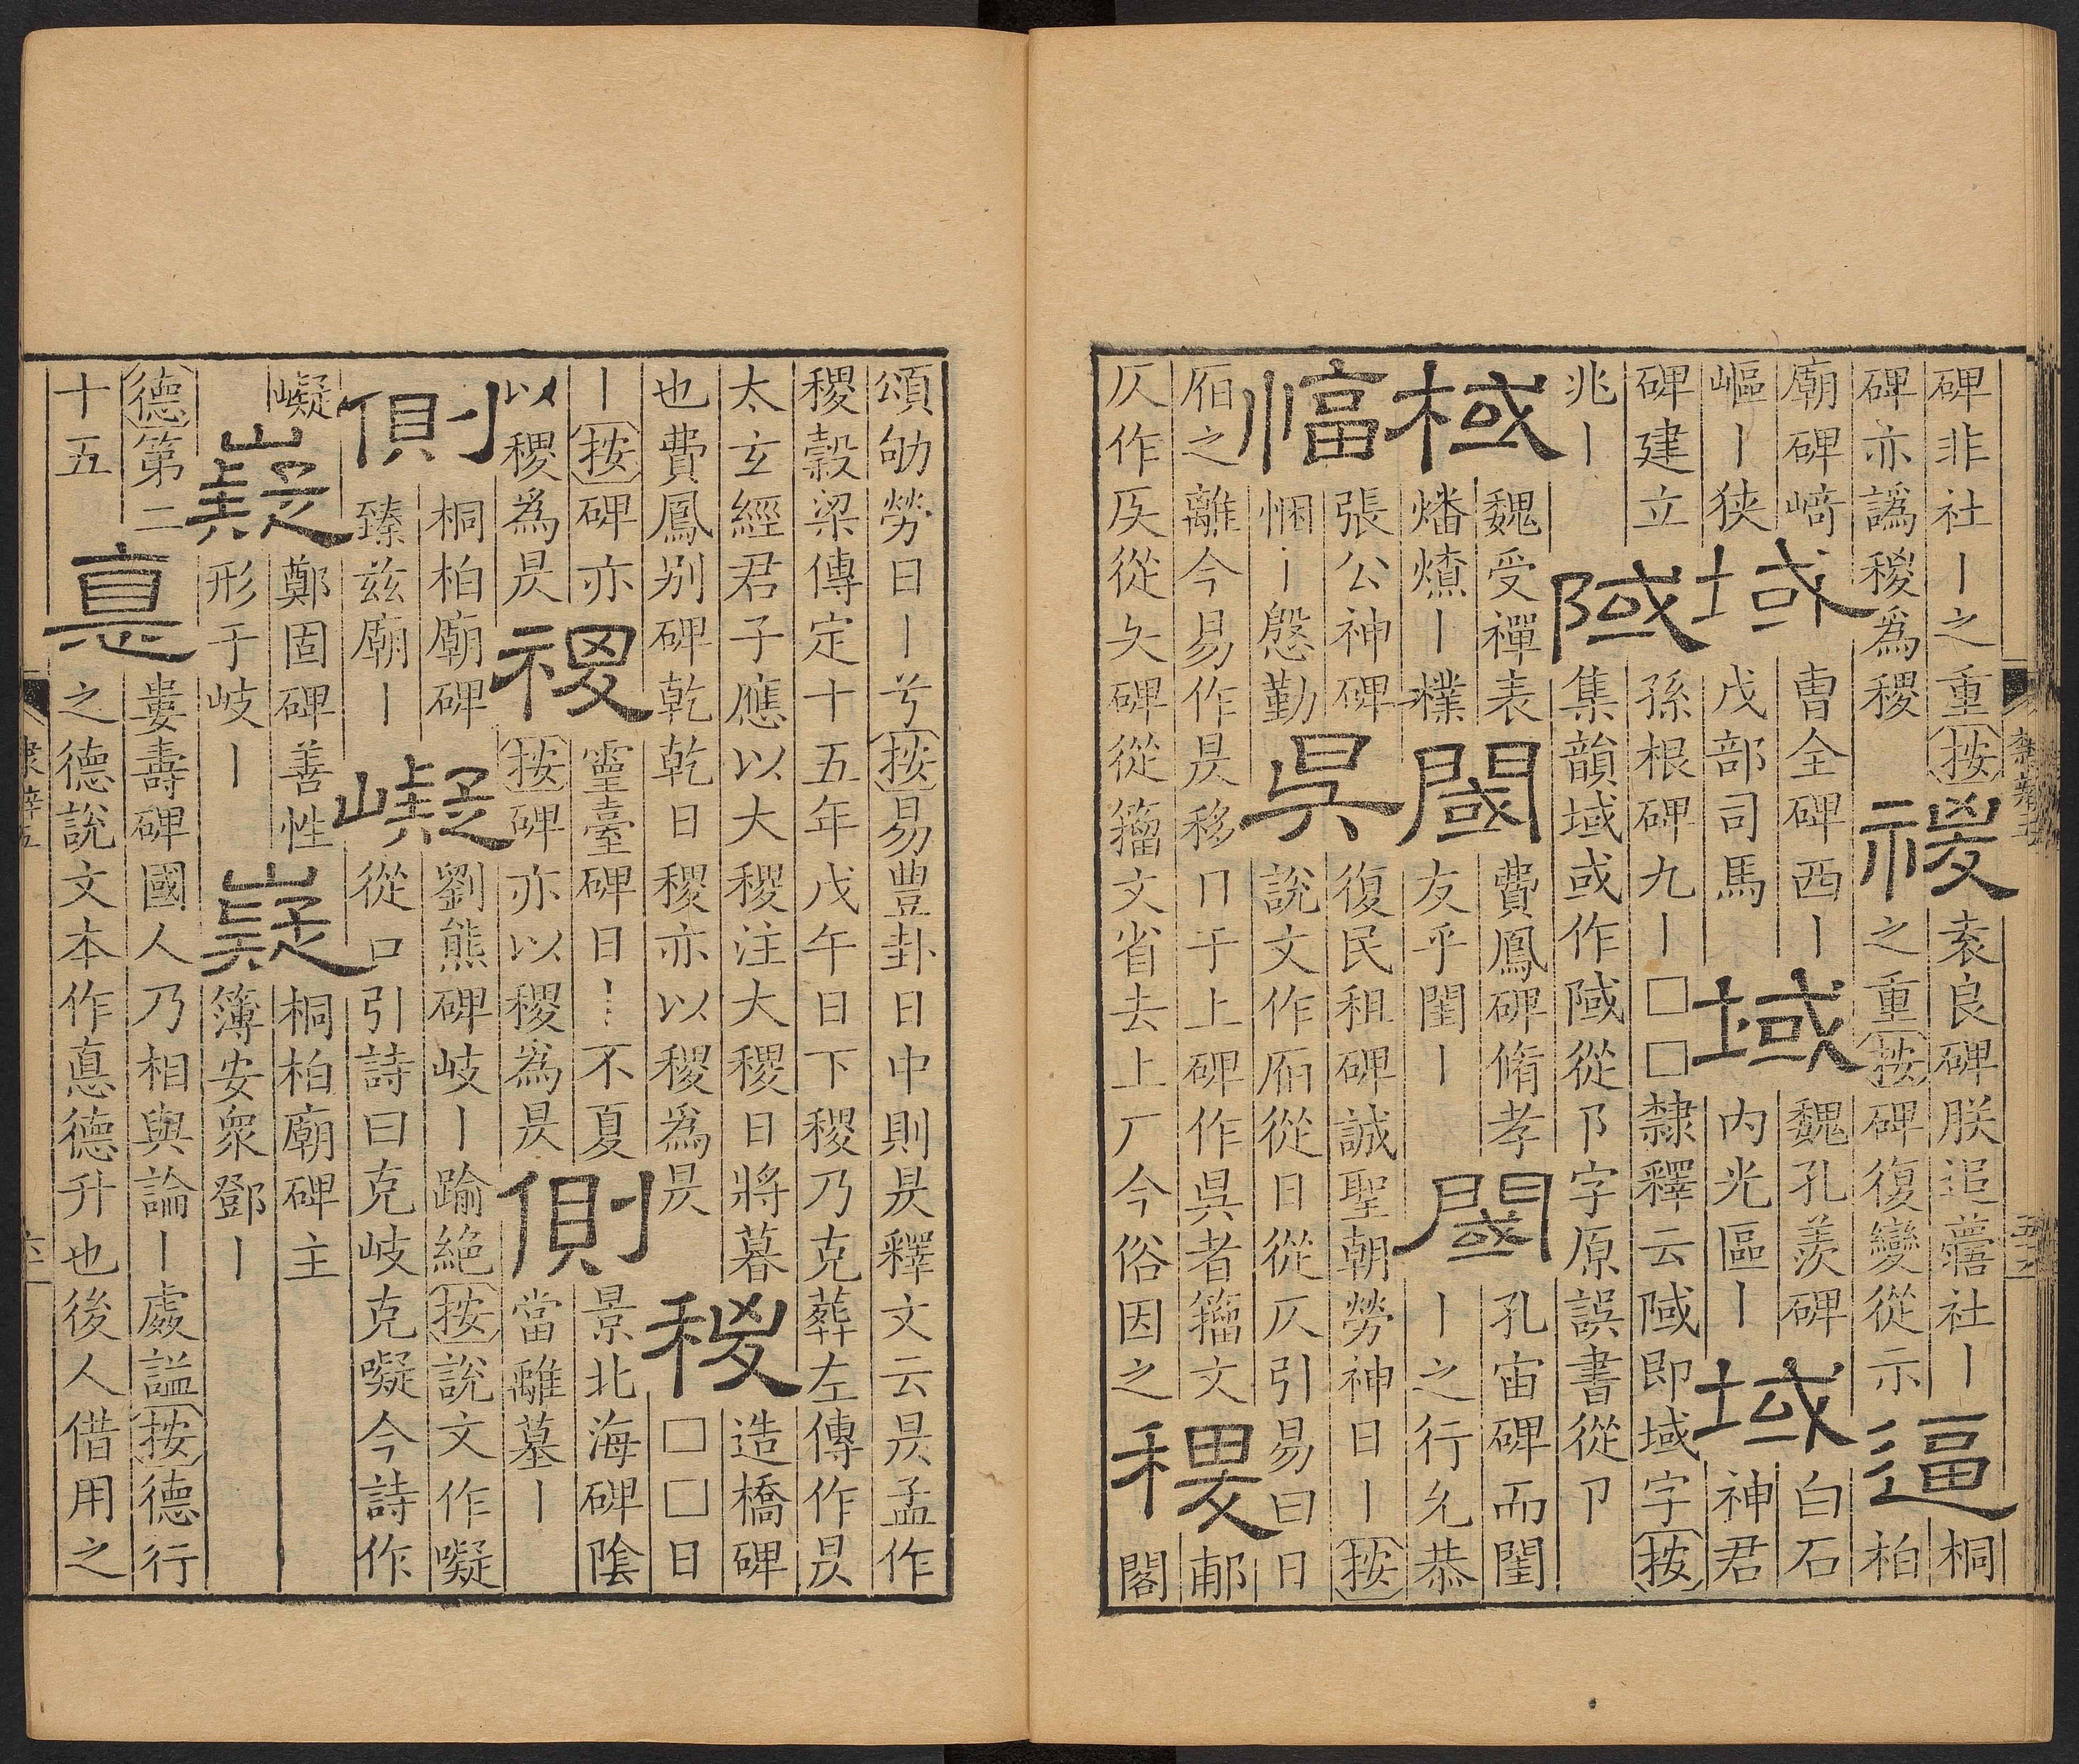 碑非社丨之重按
碑亦譌稷爲稷
稷
袁良碑朕追社丨
之重按碑復變從示
逼
桐
柏
廟碑﨑
嶇丨狭
域
曹全碑西丨
戊部司馬
域
魏孔羡碑
内光區丨
域
白石
神君
碑建立
兆丨
𨸲
孫根碑九丨□□隸釋云𨸲即域字按
集韻域或作𨸲從阝字原誤書從卩
棫
魏受禪表
燔燎丨樸
閾
費鳳碑脩孝
友乎閨丨
閾
孔宙碑而閨
丨之行允恭
愊
張公神碑
悃丨慇勤
吳
復民租碑誠聖朝勞神日丨按
說文作𣅔從日從仄引易曰日
𣅔之離今易作昃移冂于上碑作吳者籀文
仄作𠨮從夨碑從籀文省去上厂今俗因之
稷
郙
閣
頌劬勞日丨兮按易豐卦日中則昃釋文云昃孟作
稷穀梁傳定十五年戊午日下稷乃克葬左傳作昃
太玄經君子應以大稷注大稷日將暮
也費鳳别碑乾乾日稷亦以稷爲昃
稷
造橋碑
□□日
丨按碑亦
以稷爲昃
稷
靈臺碑日丨不夏
按碑亦以稷爲昃
側
景北海碑陰
當離墓丨
側
桐柏廟碑
臻兹廟丨
嶷
劉熊碑岐丨踰絶按說文作㘈
從口引詩曰克岐克㘈今詩作
嶷
嶷
鄭固碑善性
形于岐丨
嶷
桐柏廟碑主
簿安衆鄧丨
德第二
十五
悳
婁壽碑國人乃相與論丨處謚按德行
之德說文本作悳德升也後人借用之